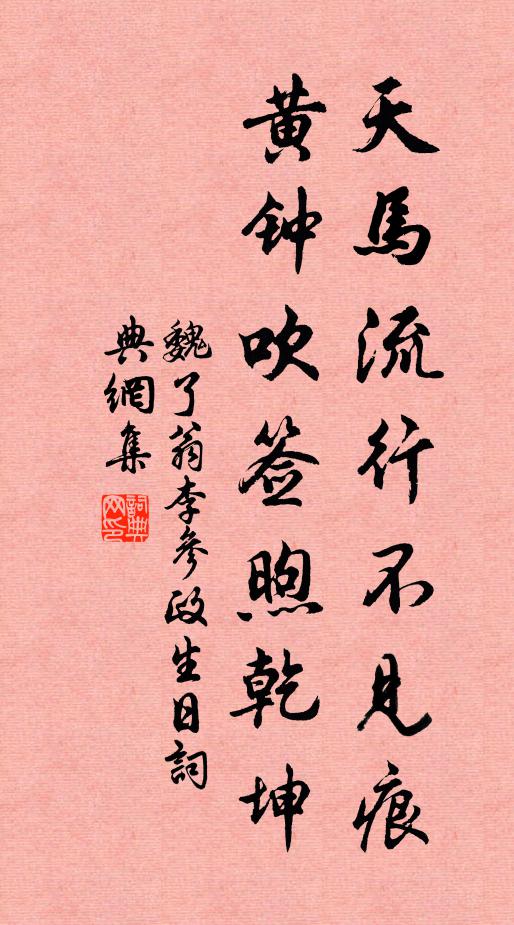 天馬流行不見痕
黄钟吹签煦乾坤
魏了翁李參政生日詞
典網集
詞典網印